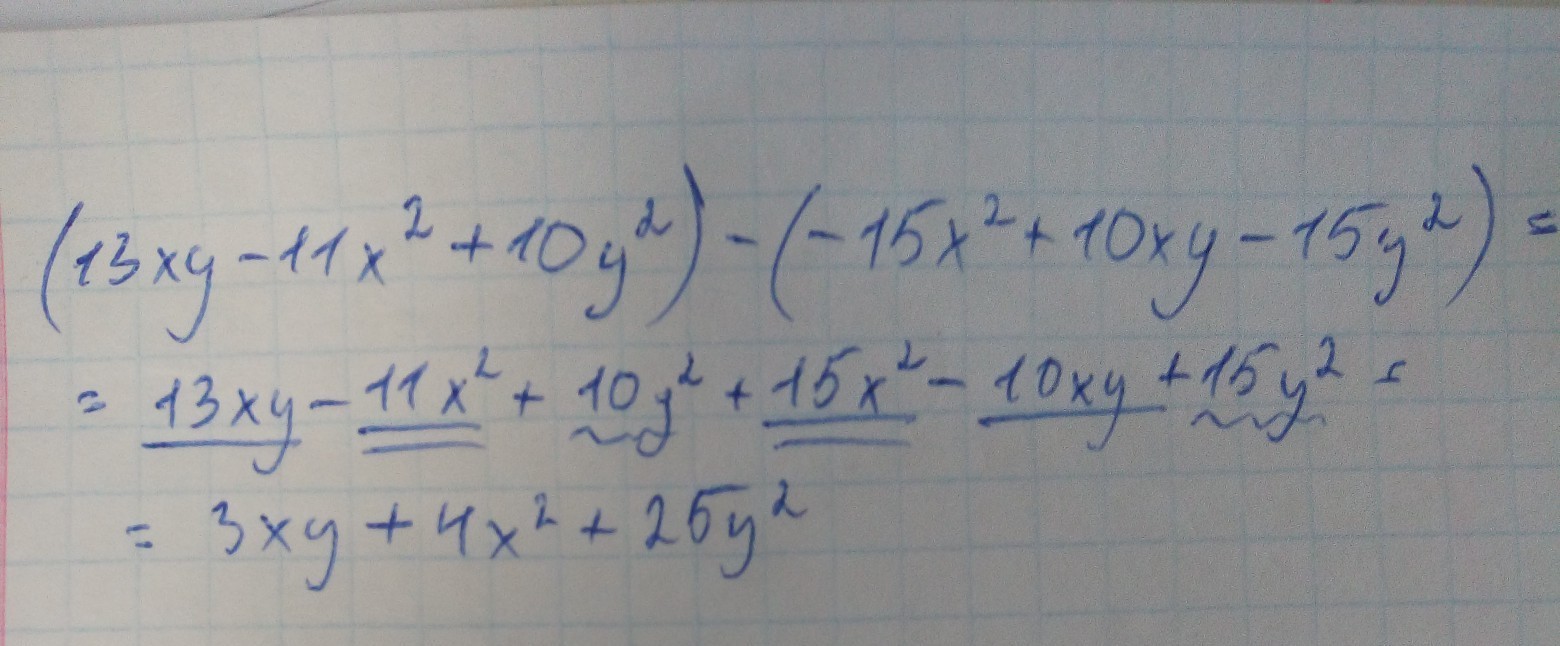 (13xy-11x²+10y²)-(-15x²+10xy-15y²)=
=13xy-11x²+10y²+15x²-10xy+15y²=
=3xy+4x²+25y²